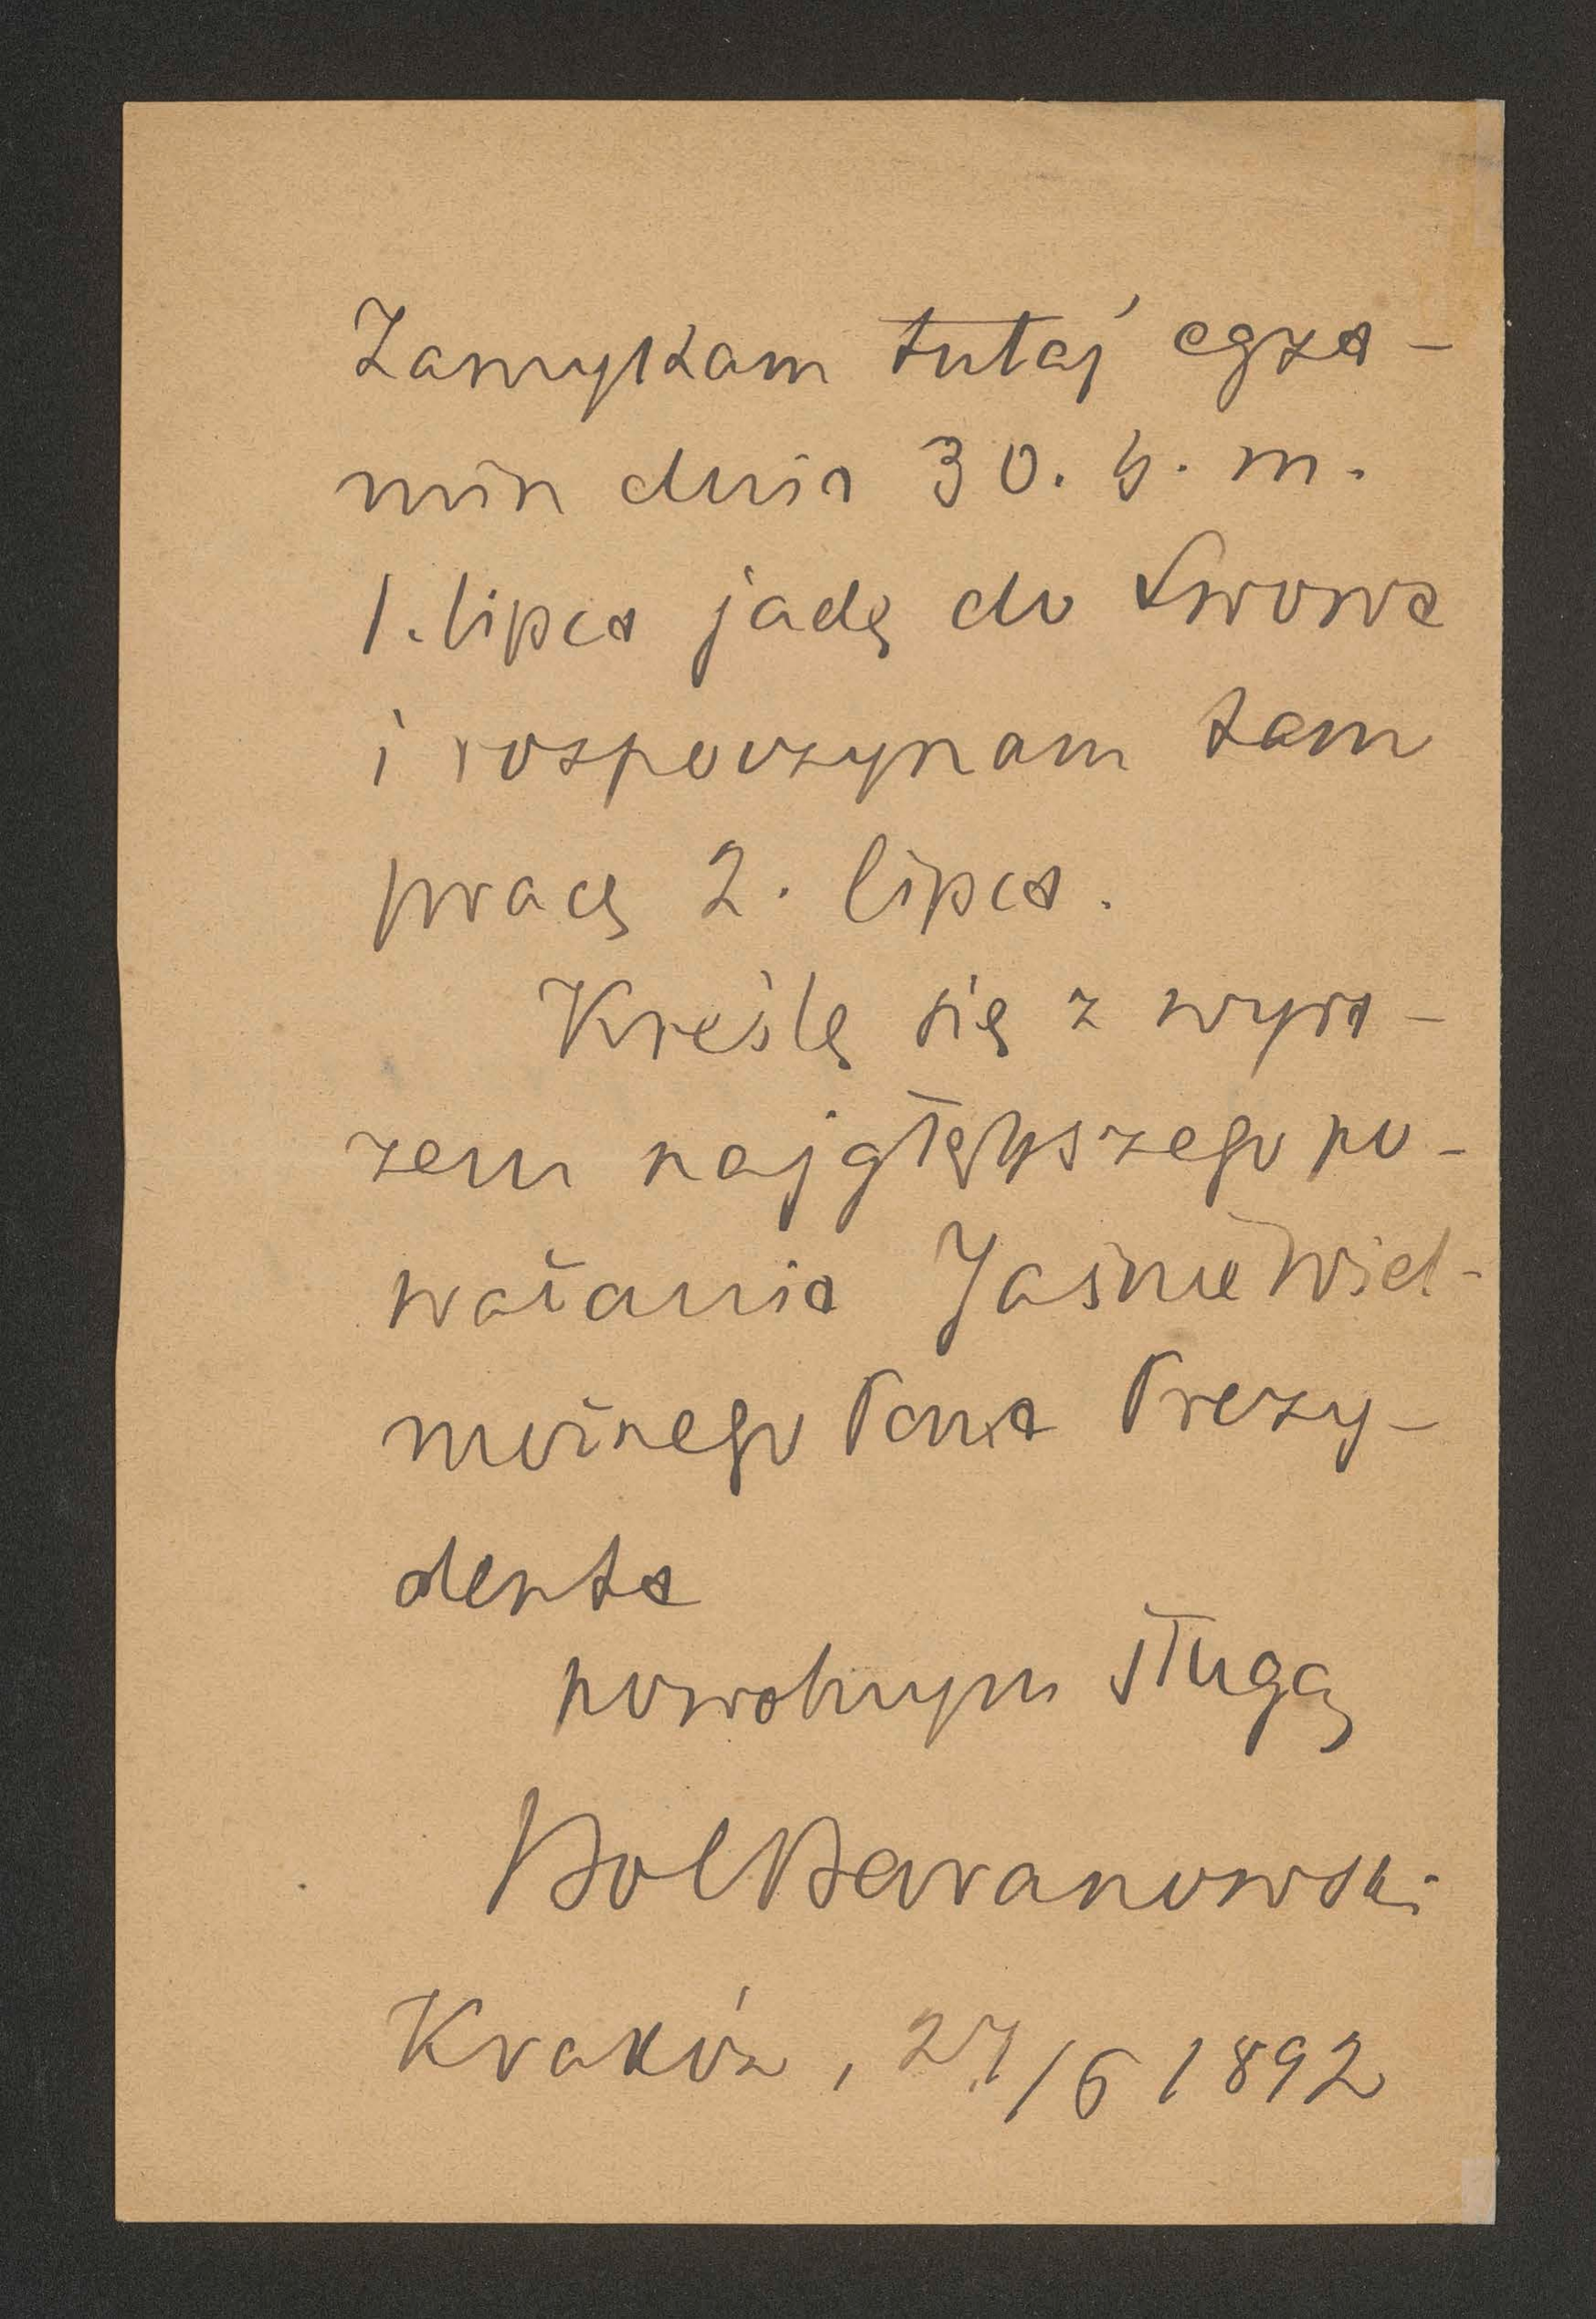 Zamykam tutaj egza-
min dnia 30. b. m.
1. lipca jadę do Lwowa
i rozpoczynam tam
pracę 2. lipca.
Kreślę się z wyra-
zem najgłębszego po-
ważania JaśnieWiel-
możnego Pana Prezy-
denta
powolnym sługą
BolBaranowski
Kraków, 27/6 1892